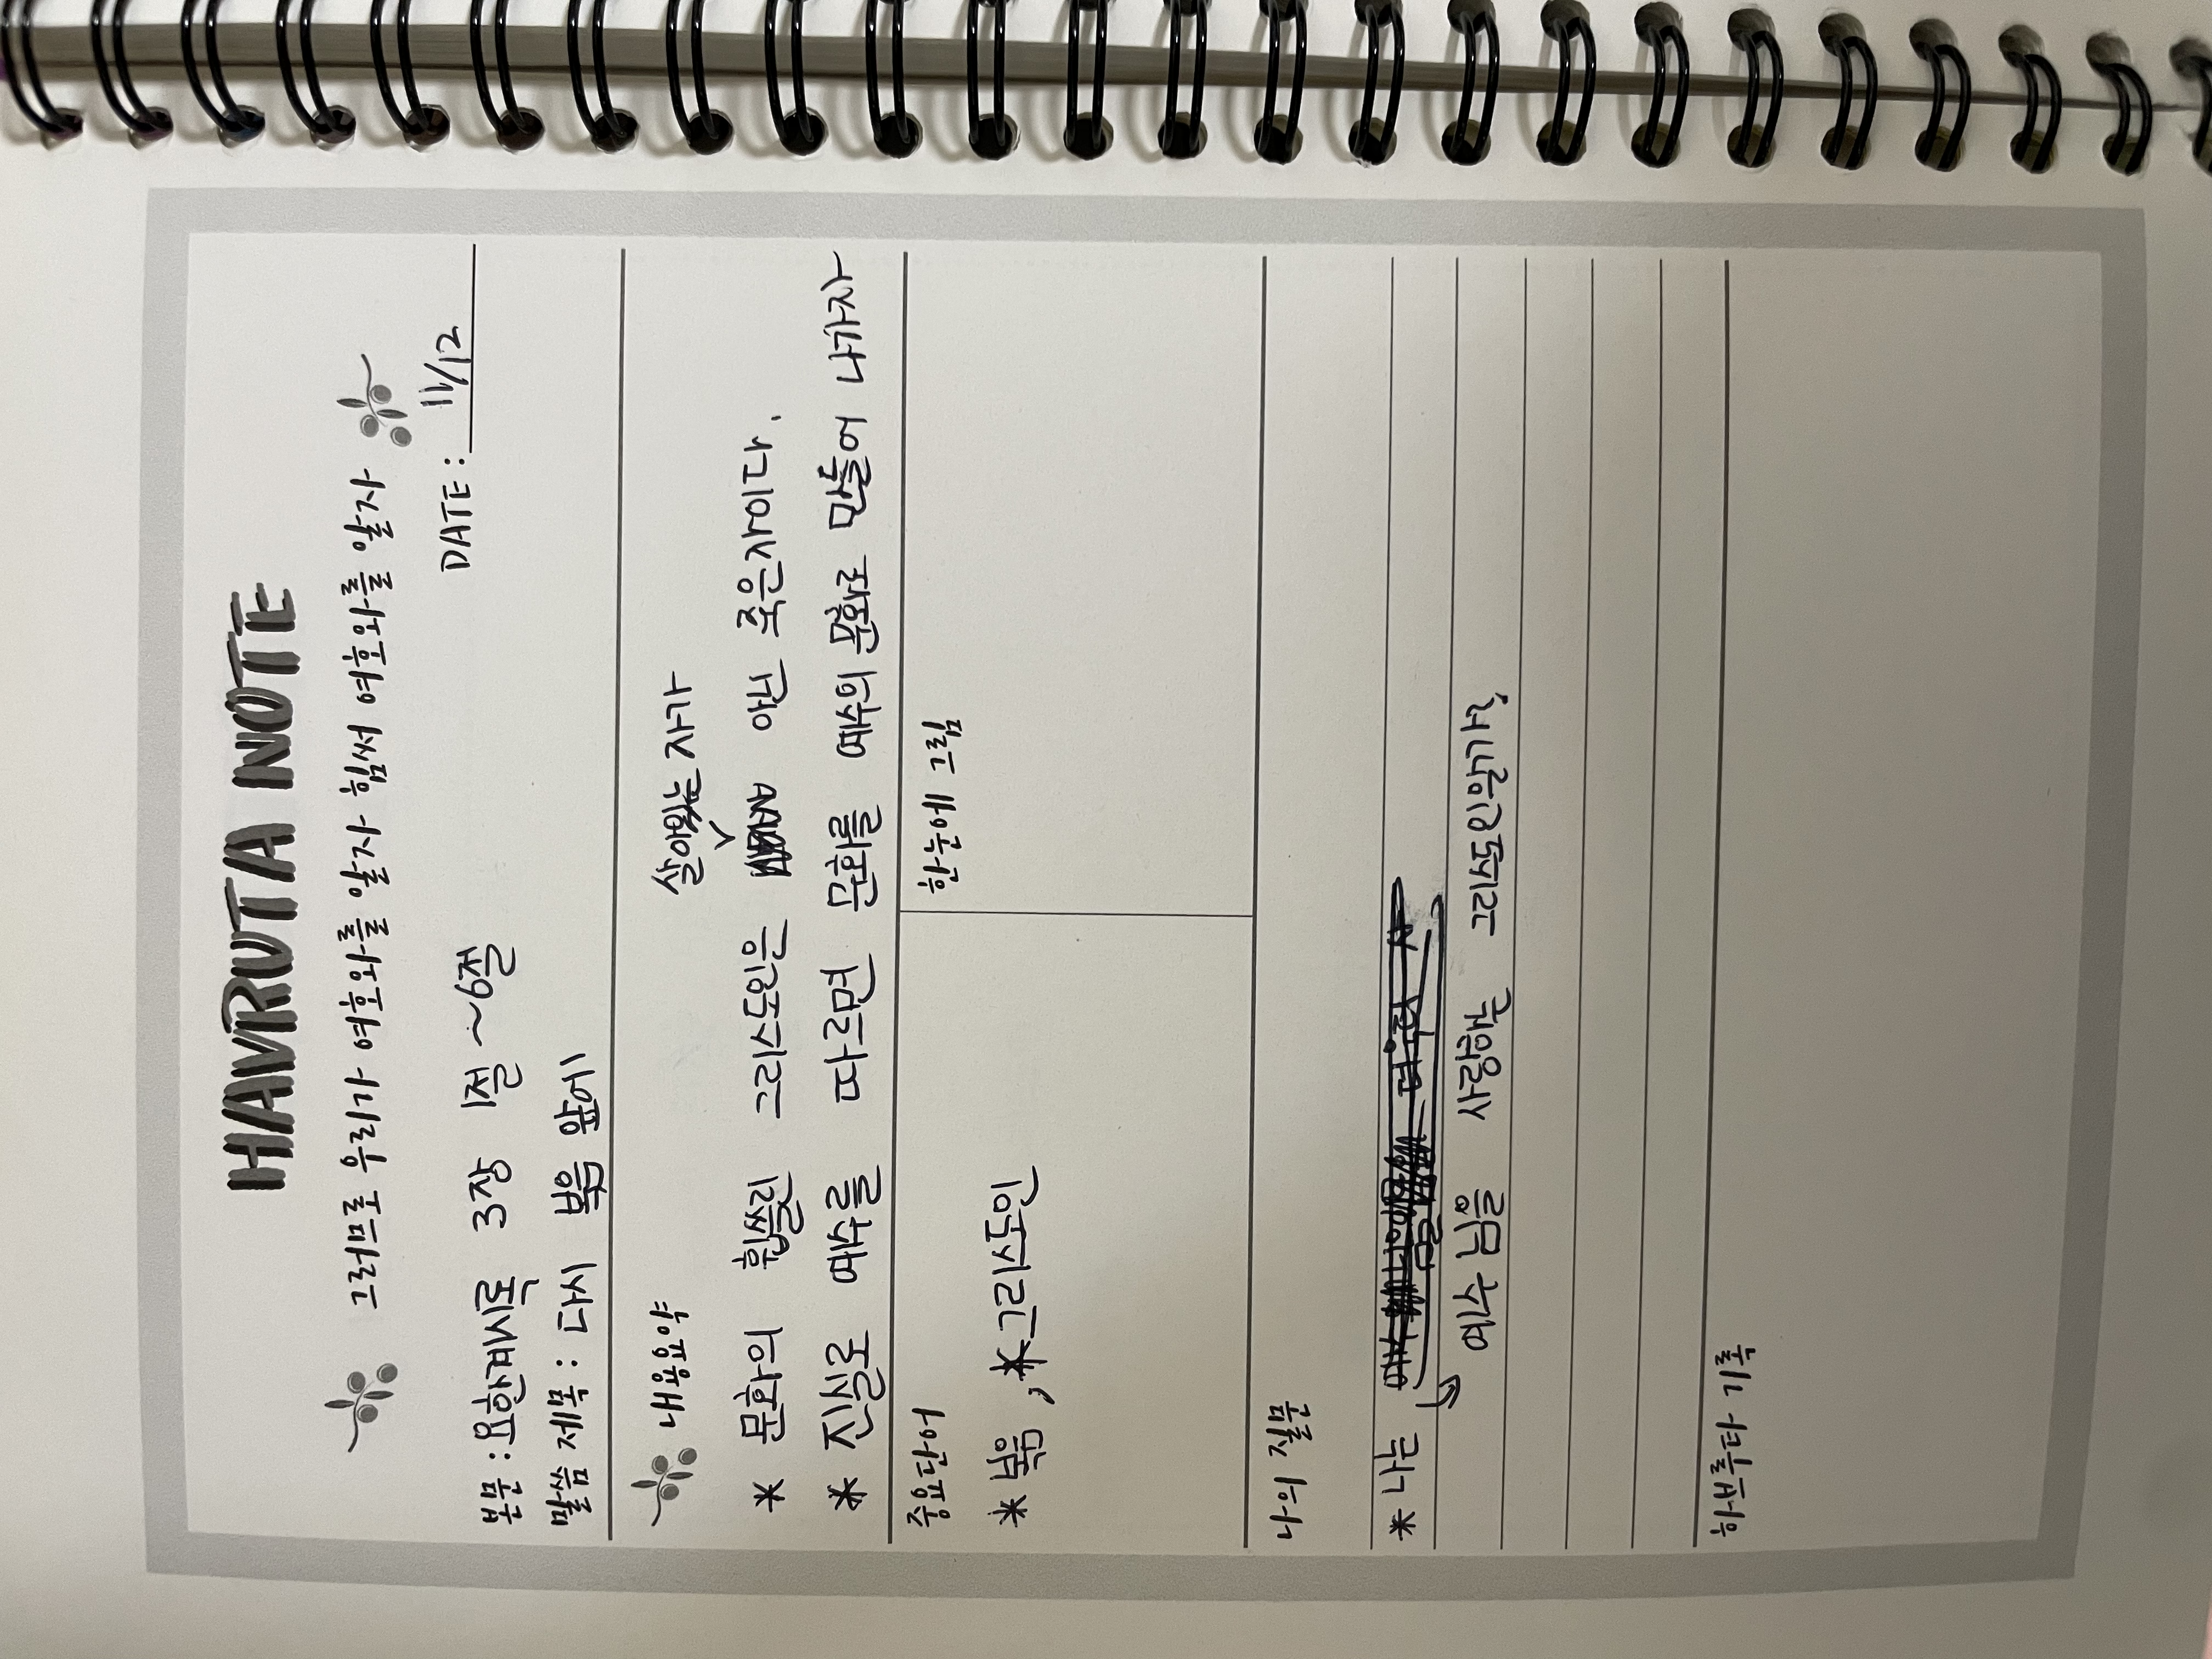 HAVRUTA NOTE
그러므로 우리가 여호와를 알자 힘써 여호와를 알자
DATE: 11/12
본문 : 요한계시록 3장 1절 ~6절
말씀 제목 : 다시 복음 앞에
내용요약
살아있는 자가
* 문화의 휩쓸린 그리스도인은 아닌 죽은자이다.
* 진실로 예수를 따르면 문화를 예수의 문화로 만들어 나가자
중요단어
* 복음, *그리스도인
한눈에 그림
나의 질문
* 나는
예수님을 사랑한 그리스도인인가?
하브루타 기록